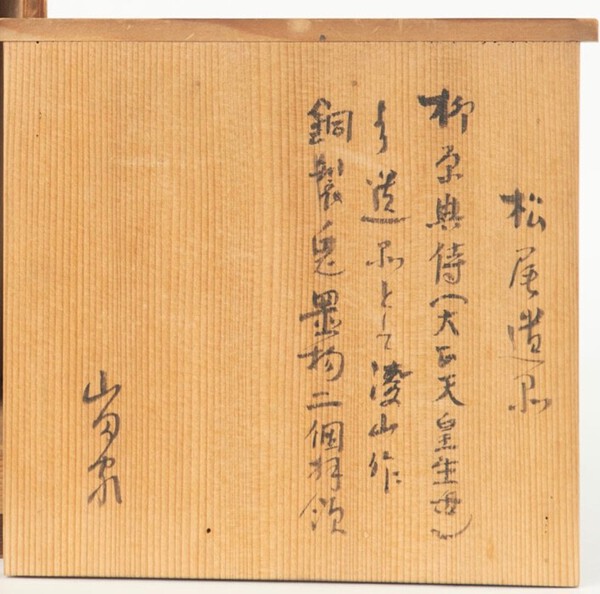 松尾遺品
柳原典侍(大正天皇生母)
より遺品として凌山作
銅製兎置物二個拝領
山口家